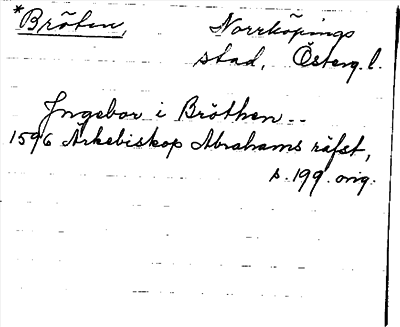 *Bröten, Norrköpings
stad, Österg. l.
Ingebor i Bröthen..
1596 Ärkebiskop Abrahams räfst,
s. 199. orig.